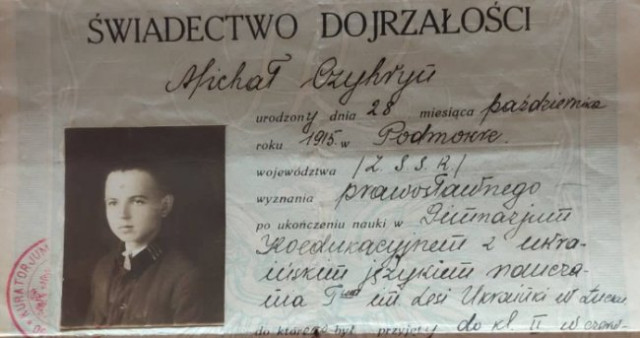 ŚWIADECTWO DOJRZAŁOŚCI
Michał Czyhryn
urodzony dnia 28 miesiąca października
roku 1915 w Podmokre
województwa /Z.S.S.R./
wyznania prawosławnego
po ukończeniu nauki w Gimnazjum
Koedukacyjnem z ukra-
ińskim językiem naucza-
nia im. Lesi Ukrainki w Łucku
do którego był przyjęty do kl. II w czerw-
KURATORJUM